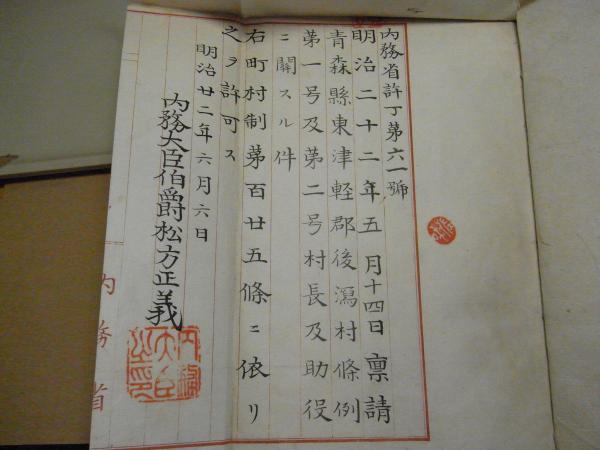 内務省許丁第六一號
明治二十二年五月十四日稟請
青森縣東津軽郡後潟村條例
第一号及第二号村長及助役
ニ關スル件
右町村制第百廿五條ニ依リ
之ヲ許可ス
明治廿二年六月六日
内務大臣伯爵松方正義
内務大臣之印
内務省